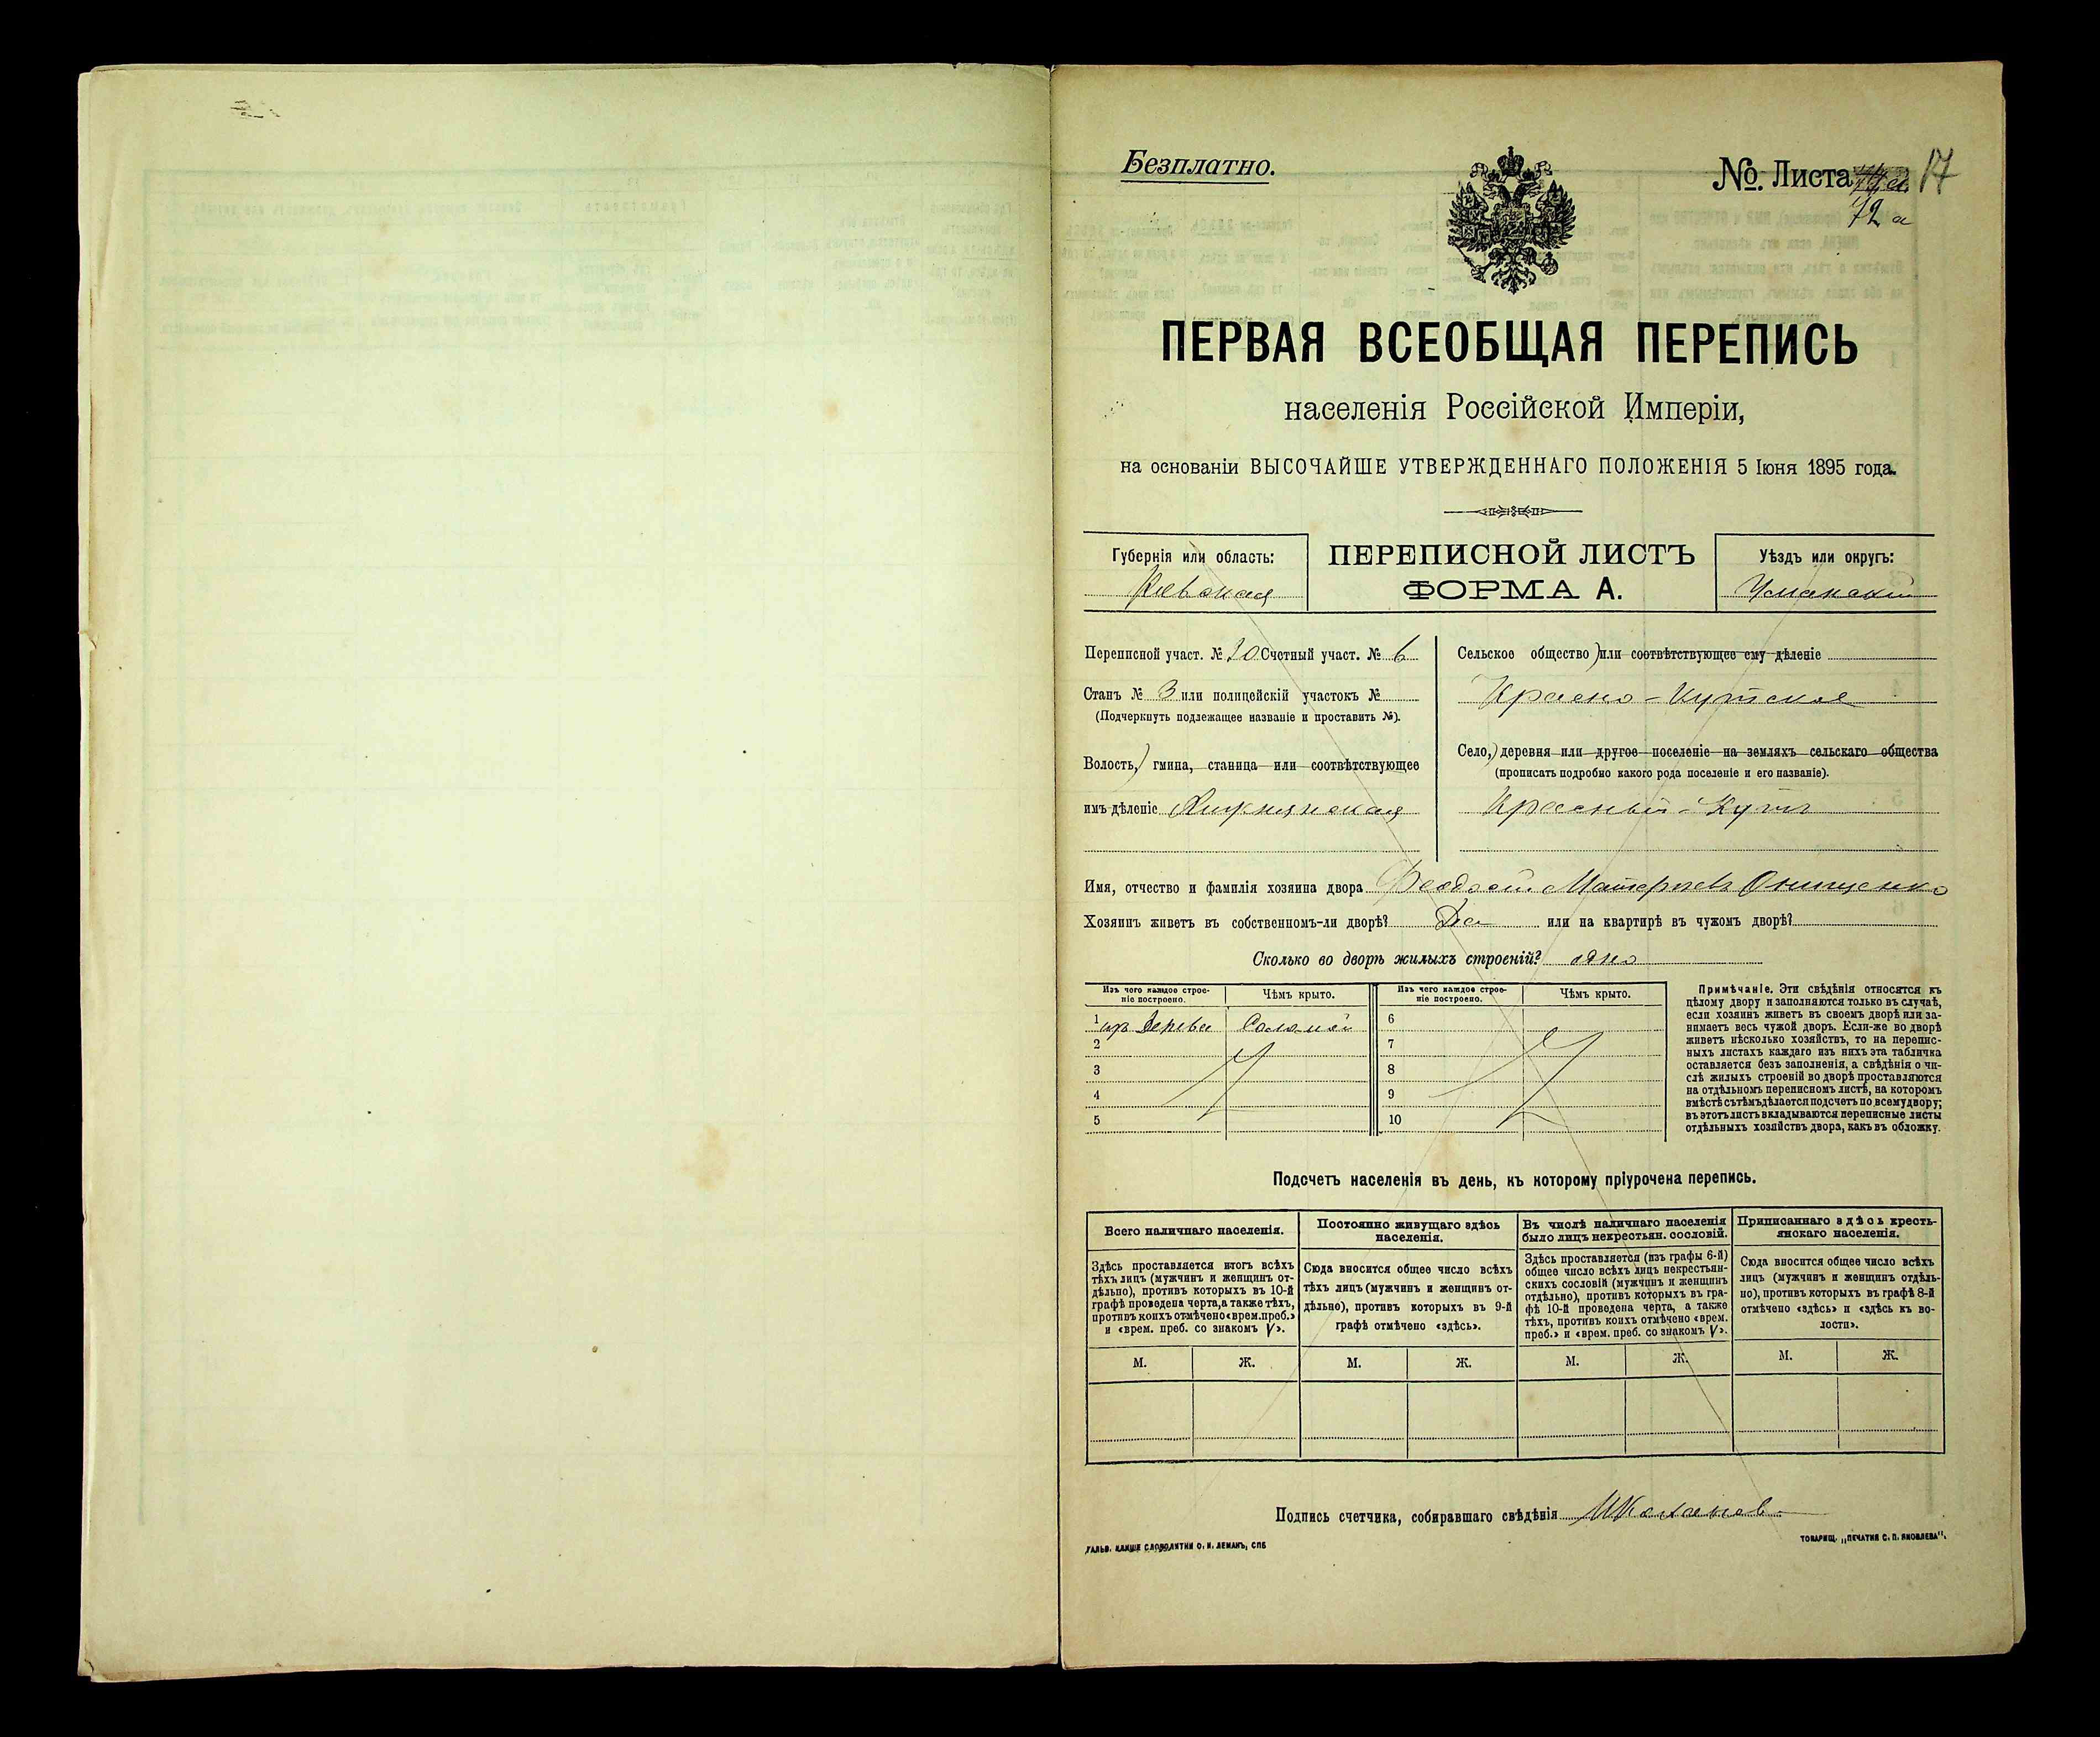 Безплатно.
№. Листа 17
72 а
ПЕРВАЯ ВСЕОБЩАЯ ПЕРЕПИСЬ
населенія Россійской Имперіи,
на основаніи ВЫСОЧАЙШЕ УТВЕРЖДЕННАГО ПОЛОЖЕНІЯ 5 Іюня 1895 года.
Губернія или область:
Кіевская
ПЕРЕПИСНОЙ ЛИСТЪ
ФОРМА А.
Уѣздъ или округъ:
Уманскій
Переписной участ. № 30 Счетный участ. № 6
Станъ № 3 или полицейскій участокъ №
(Подчеркнуть подлежащее названіе и проставить №).
Волость,) гмина, станица или соотвѣтствующее
имъ дѣленіе
Сельское общество) или соотвѣтствующее ему дѣленіе
Красно-Кутское
Село,) деревня или другое поселеніе на земляхъ сельскаго общества
(прописать подробно какого рода поселеніе и его названіе).
Красный-Кутъ
Имя, отчество и фамилія хозяина двора Феодосій Матфіевъ Онищенко
Хозяинъ живетъ въ собственномъ-ли дворѣ? Да или на квартирѣ въ чужомъ дворѣ?
Сколько во дворѣ жилыхъ строеній? одно
Изъ чего каждое строе-
ніе построено.
Чѣмъ крыто.
1 изъ дерева Соломой
2
3
4
5
Изъ чего каждое строе-
ніе построено.
Чѣмъ крыто.
6
7
8
9
10
Примѣчаніе. Эти свѣдѣнія относятся къ
цѣлому двору и заполняются только въ случаѣ,
если хозяинъ живетъ въ своемъ дворѣ или за-
нимаетъ весь чужой дворъ. Если-же во дворѣ
живетъ нѣсколько хозяйствъ, то на перепис-
ныхъ листахъ каждаго изъ нихъ эта табличка
оставляется безъ заполненія, а свѣдѣнія о чи-
слѣ жилыхъ строеній во дворѣ проставляются
на отдѣльномъ переписномъ листѣ, на которомъ
вмѣстѣ съ тѣмъ дѣлается подсчетъ по всему двору;
въ этотъ листъ вкладываются переписные листы
отдѣльныхъ хозяйствъ двора, какъ въ обложку.
Подсчетъ населенія въ день, къ которому пріурочена перепись.
Всего наличнаго населенія.
Здѣсь проставляется итогъ всѣхъ
тѣхъ лицъ (мужчинъ и женщинъ от-
дѣльно), противъ которыхъ въ 10-й
графѣ проведена черта, а также тѣхъ,
противъ коихъ отмѣчено «врем. преб.»
и «врем. преб. со знакомъ V».
М. Ж.
Постоянно живущаго здѣсь
населенія.
Сюда вносится общее число всѣхъ
тѣхъ лицъ (мужчинъ и женщинъ от-
дѣльно), противъ которыхъ въ 9-й
графѣ отмѣчено «здѣсь».
М. Ж.
Въ числѣ наличнаго населенія
было лицъ некрестьян. сословій.
Здѣсь проставляется (изъ графы 6-й)
общее число всѣхъ лицъ некрестьян-
скихъ сословій (мужчинъ и женщинъ
отдѣльно), противъ которыхъ въ гра-
фѣ 10-й проведена черта, а также
тѣхъ, противъ коихъ отмѣчено «врем.
преб.» и «врем. преб. со знакомъ V».
М. Ж.
Приписаннаго здѣсь кресть-
янскаго населенія.
Сюда вносится общее число всѣхъ
лицъ (мужчинъ и женщинъ отдѣль-
но), противъ которыхъ въ графѣ 8-й
отмѣчено «здѣсь» и «здѣсь къ во-
лости».
М. Ж.
Подпись счетчика, собиравшаго свѣдѣнія
ГАЛЬВ. КЛИШЕ СЛОВОЛИТНИ О. И. ЛЕМАНЪ, СПБ
ТОВАРИЩ. „ПЕЧАТНЯ С. П. ЯКОВЛЕВА".